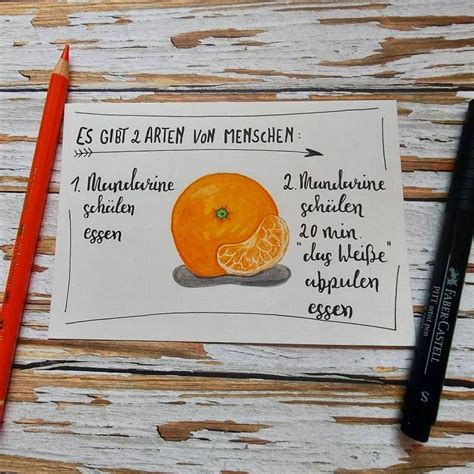 Es gibt 2 Arten von Menschen:
1. Mandarine
schälen
essen
2. Mandarine
schälen
20 min.
"das Weiße"
abpulen
essen
FABER-CASTELL
PITT artist pen
S